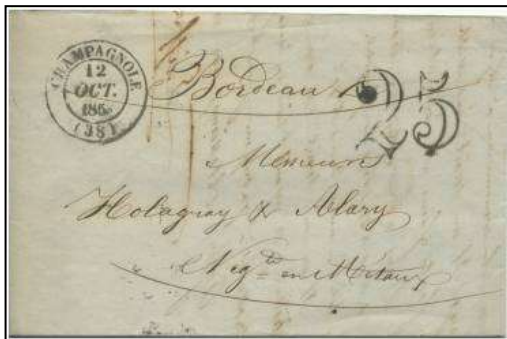 CHAMPAGNOLE
12
OCT.
(38)
25
Bordeaux
Messieurs
Holagray & Alary
Nég.ts en Métaux